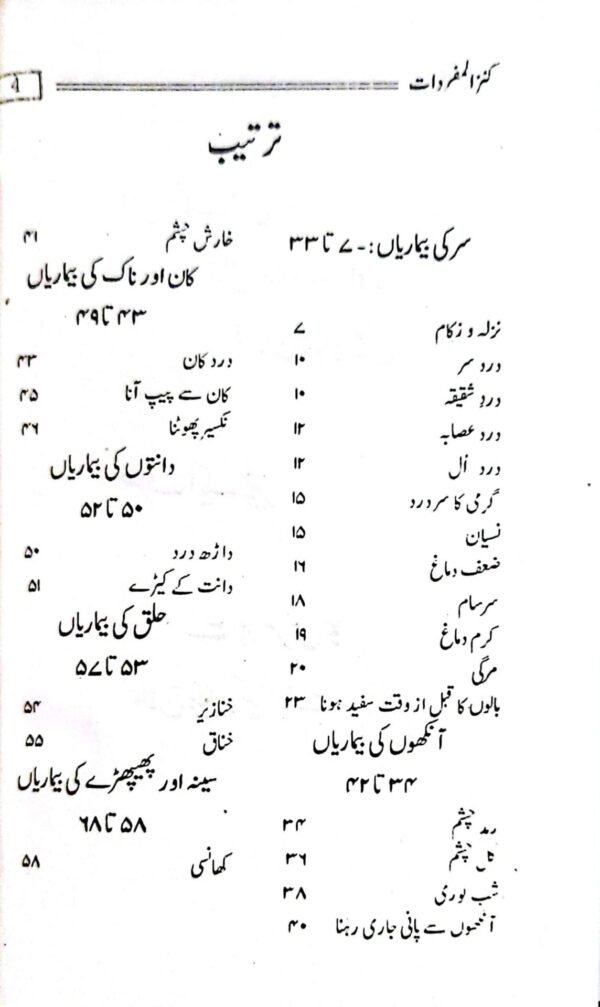 کنز المفردات
4
ترتیب
سر کی بیماریاں :- ۷ تا ۳۳
نزلہ و زکام ۷
درد سر ۱۰
درد شقیقہ ۱۰
درد عصابہ ۱۲
درد اُل ۱۲
گرمی کا سر درد ۱۵
نسیان ۱۵
ضعف دماغ ۱۶
سرسام ۱۸
کرم دماغ ۱۹
مرگی ۲۰
بالوں کا قبل از وقت سفید ہونا ۲۳
آنکھوں کی بیماریاں
۳۴ تا ۴۲
رمد چشم ۳۴
چشم ۳۶
شب کوری ۳۸
آنکھوں سے پانی جاری رہنا ۴۰
خارش چشم ۴۱
کان اور ناک کی بیماریاں
۴۳ تا ۴۹
درد کان ۴۳
کان سے پیپ آنا ۴۵
نکسیر پھوٹنا ۴۶
دانتوں کی بیماریاں
۵۰ تا ۵۲
داڑھ درد ۵۰
دانت کے کیڑے ۵۱
حلق کی بیماریاں
۵۳ تا ۵۷
خنازیر ۵۴
خناق ۵۵
سینہ اور پھیپھڑے کی بیماریاں
۵۸ تا ۶۸
کھانسی ۵۸